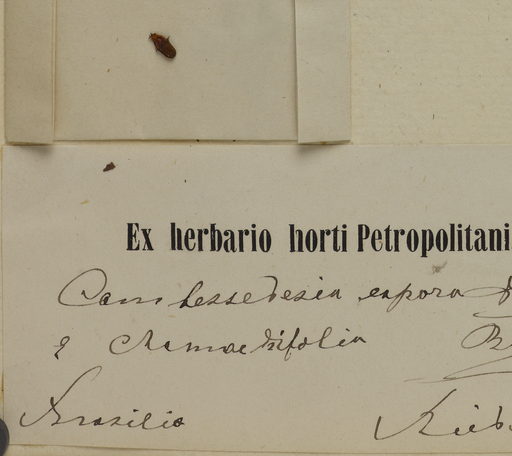 Ex herbario horti Petropolitani
Cambessedesia espora D
β Chamaedrifolia B
Brasilia Ried